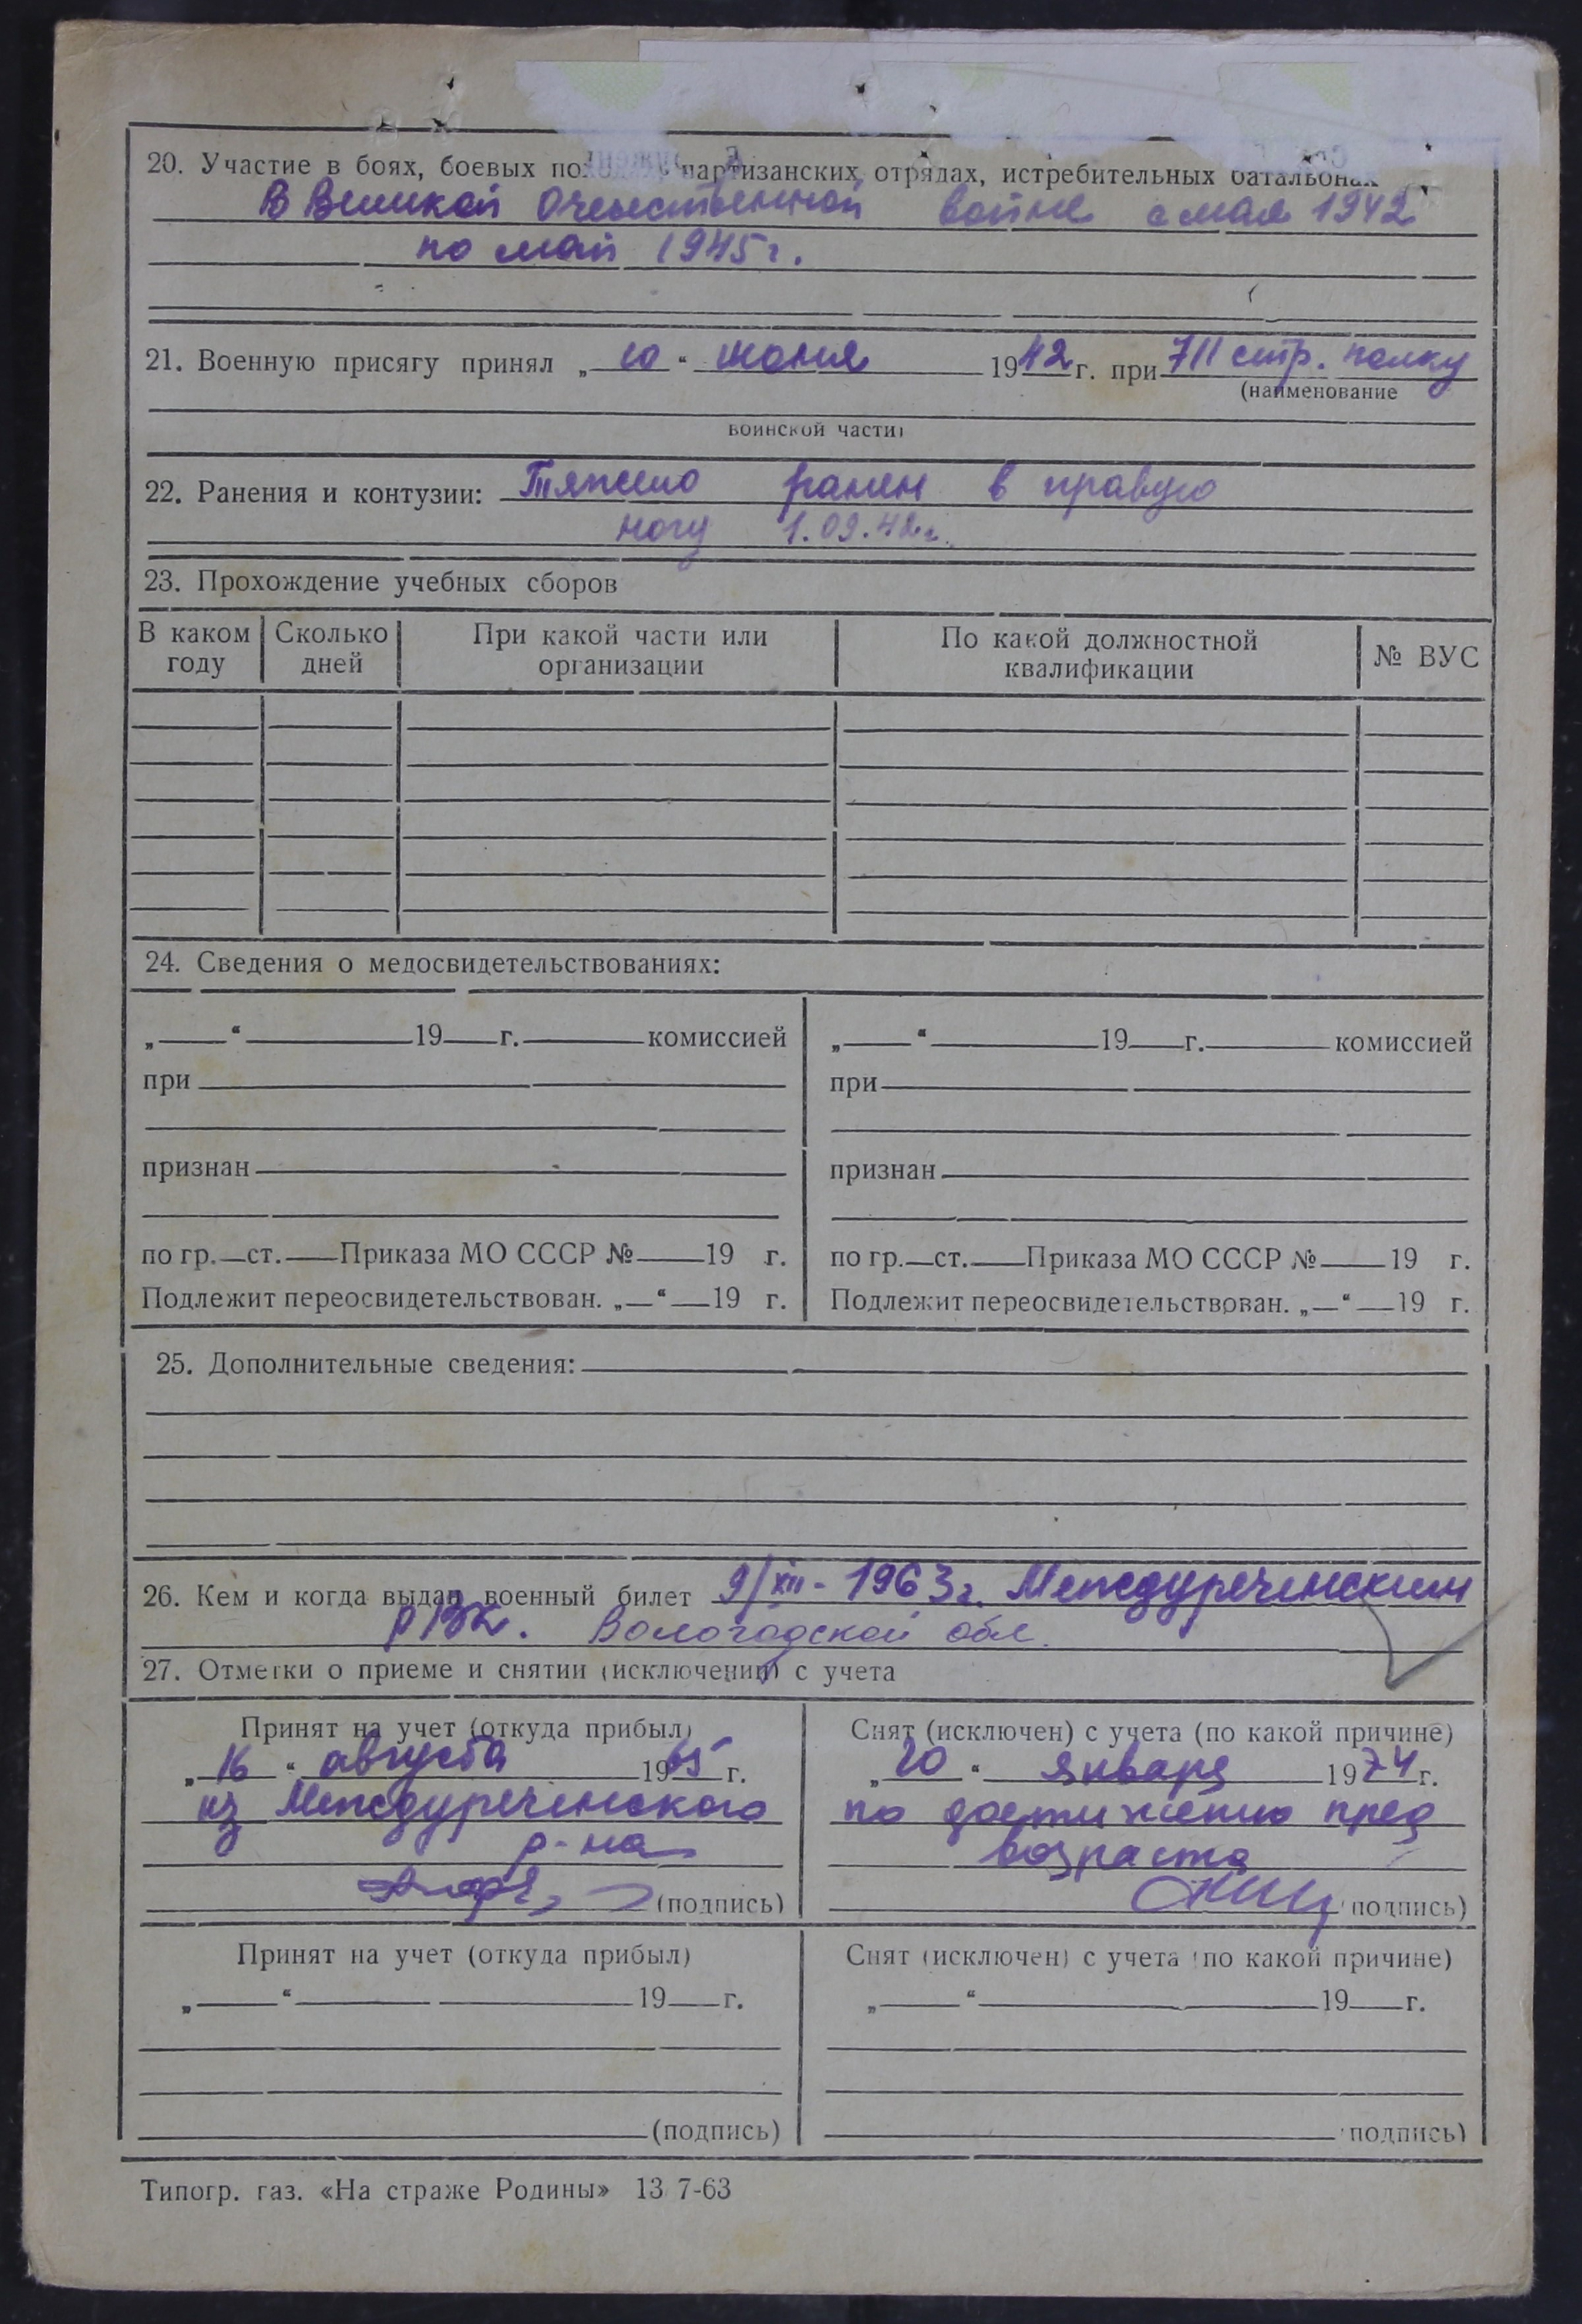 20. Участие в боях, боевых по партизанских отрядах, истребительных батальонах
В Великой Отечественной войне с мая 1942
по май 1945 г.
21. Военную присягу принял „10“ июня 1942 г. при 711 стр. полку
(наименование
воинской части)
22. Ранения и контузии: Тяжело ранен в правую
ногу 1.09.42 г.
23. Прохождение учебных сборов
В каком году
Сколько дней
При какой части или организации
По какой должностной квалификации
№ ВУС
24. Сведения о медосвидетельствованиях:
„ “ 19 г. комиссией
при
признан
по гр. ст. Приказа МО СССР № 19 г.
Подлежит переосвидетельствован. „ “ 19 г.
„ “ 19 г. комиссией
при
признан
по гр. ст. Приказа МО СССР № 19 г.
Подлежит переосвидетельствован. „ “ 19 г.
25. Дополнительные сведения:
26. Кем и когда выдан военный билет 9/XII-1963 г. Междуреченским
РВК. Вологодской обл.
27. Отметки о приеме и снятии (исключении) с учета
Принят на учет (откуда прибыл)
„16“ августа 1965 г.
из Междуреченского
р-на
(подпись)
Снят (исключен) с учета (по какой причине)
„20“ января 1974 г.
по достижению пред
возраста
(подпись)
Принят на учет (откуда прибыл)
„ “ 19 г.
(подпись)
Снят (исключен) с учета (по какой причине)
„ “ 19 г.
подпись)
Типогр. газ. «На страже Родины» 13 7-63